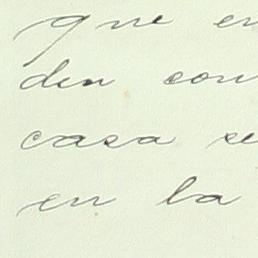 que en
den con
casa se
en la